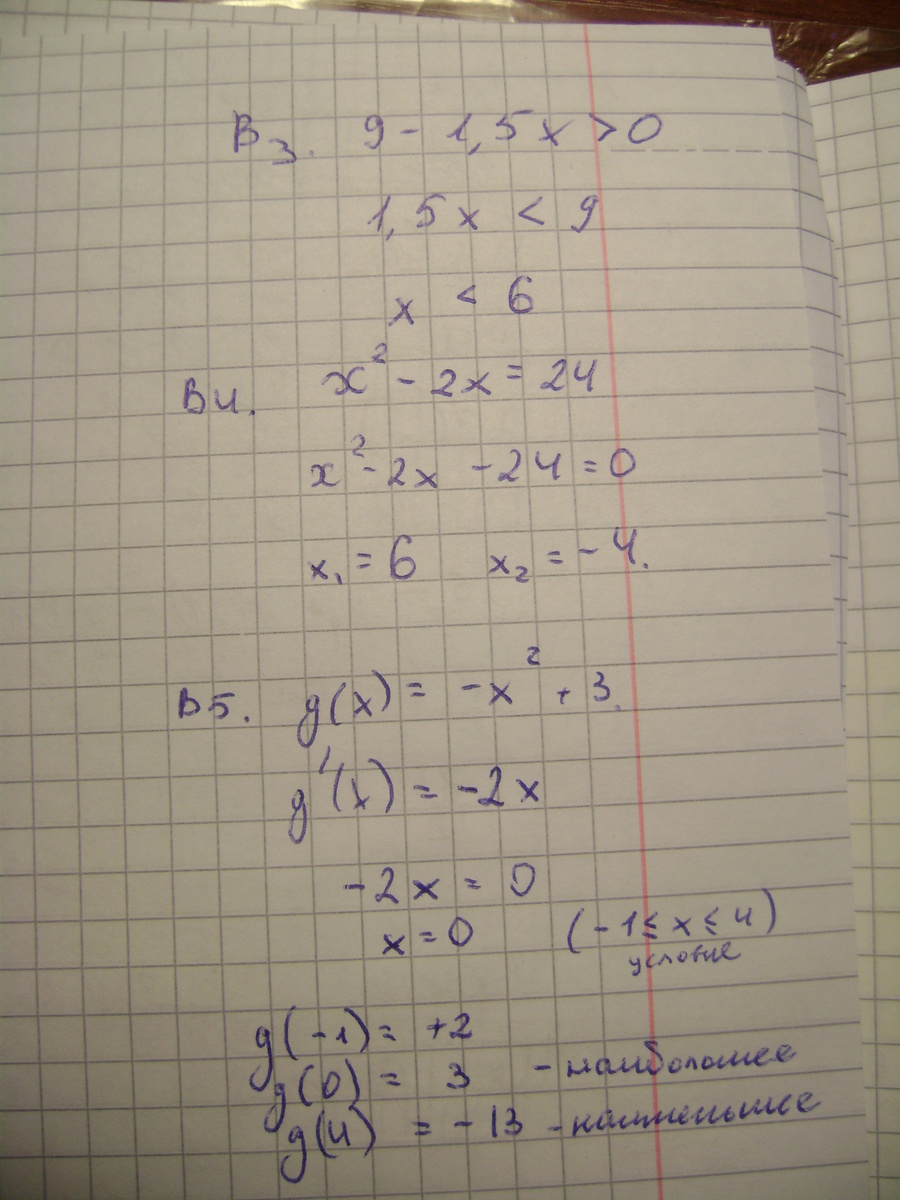 В3. 9 - 1,5x > 0
1,5x < 9
x < 6
В4. x² - 2x = 24
x² - 2x - 24 = 0
x₁ = 6 x₂ = -4.
В5. g(x) = -x² + 3.
g'(x) = -2x
-2x = 0
x = 0 (-1 ≤ x ≤ 4)
условие
g(-1) = +2
g(0) = 3 - наибольшее
g(4) = -13 - наименьшее